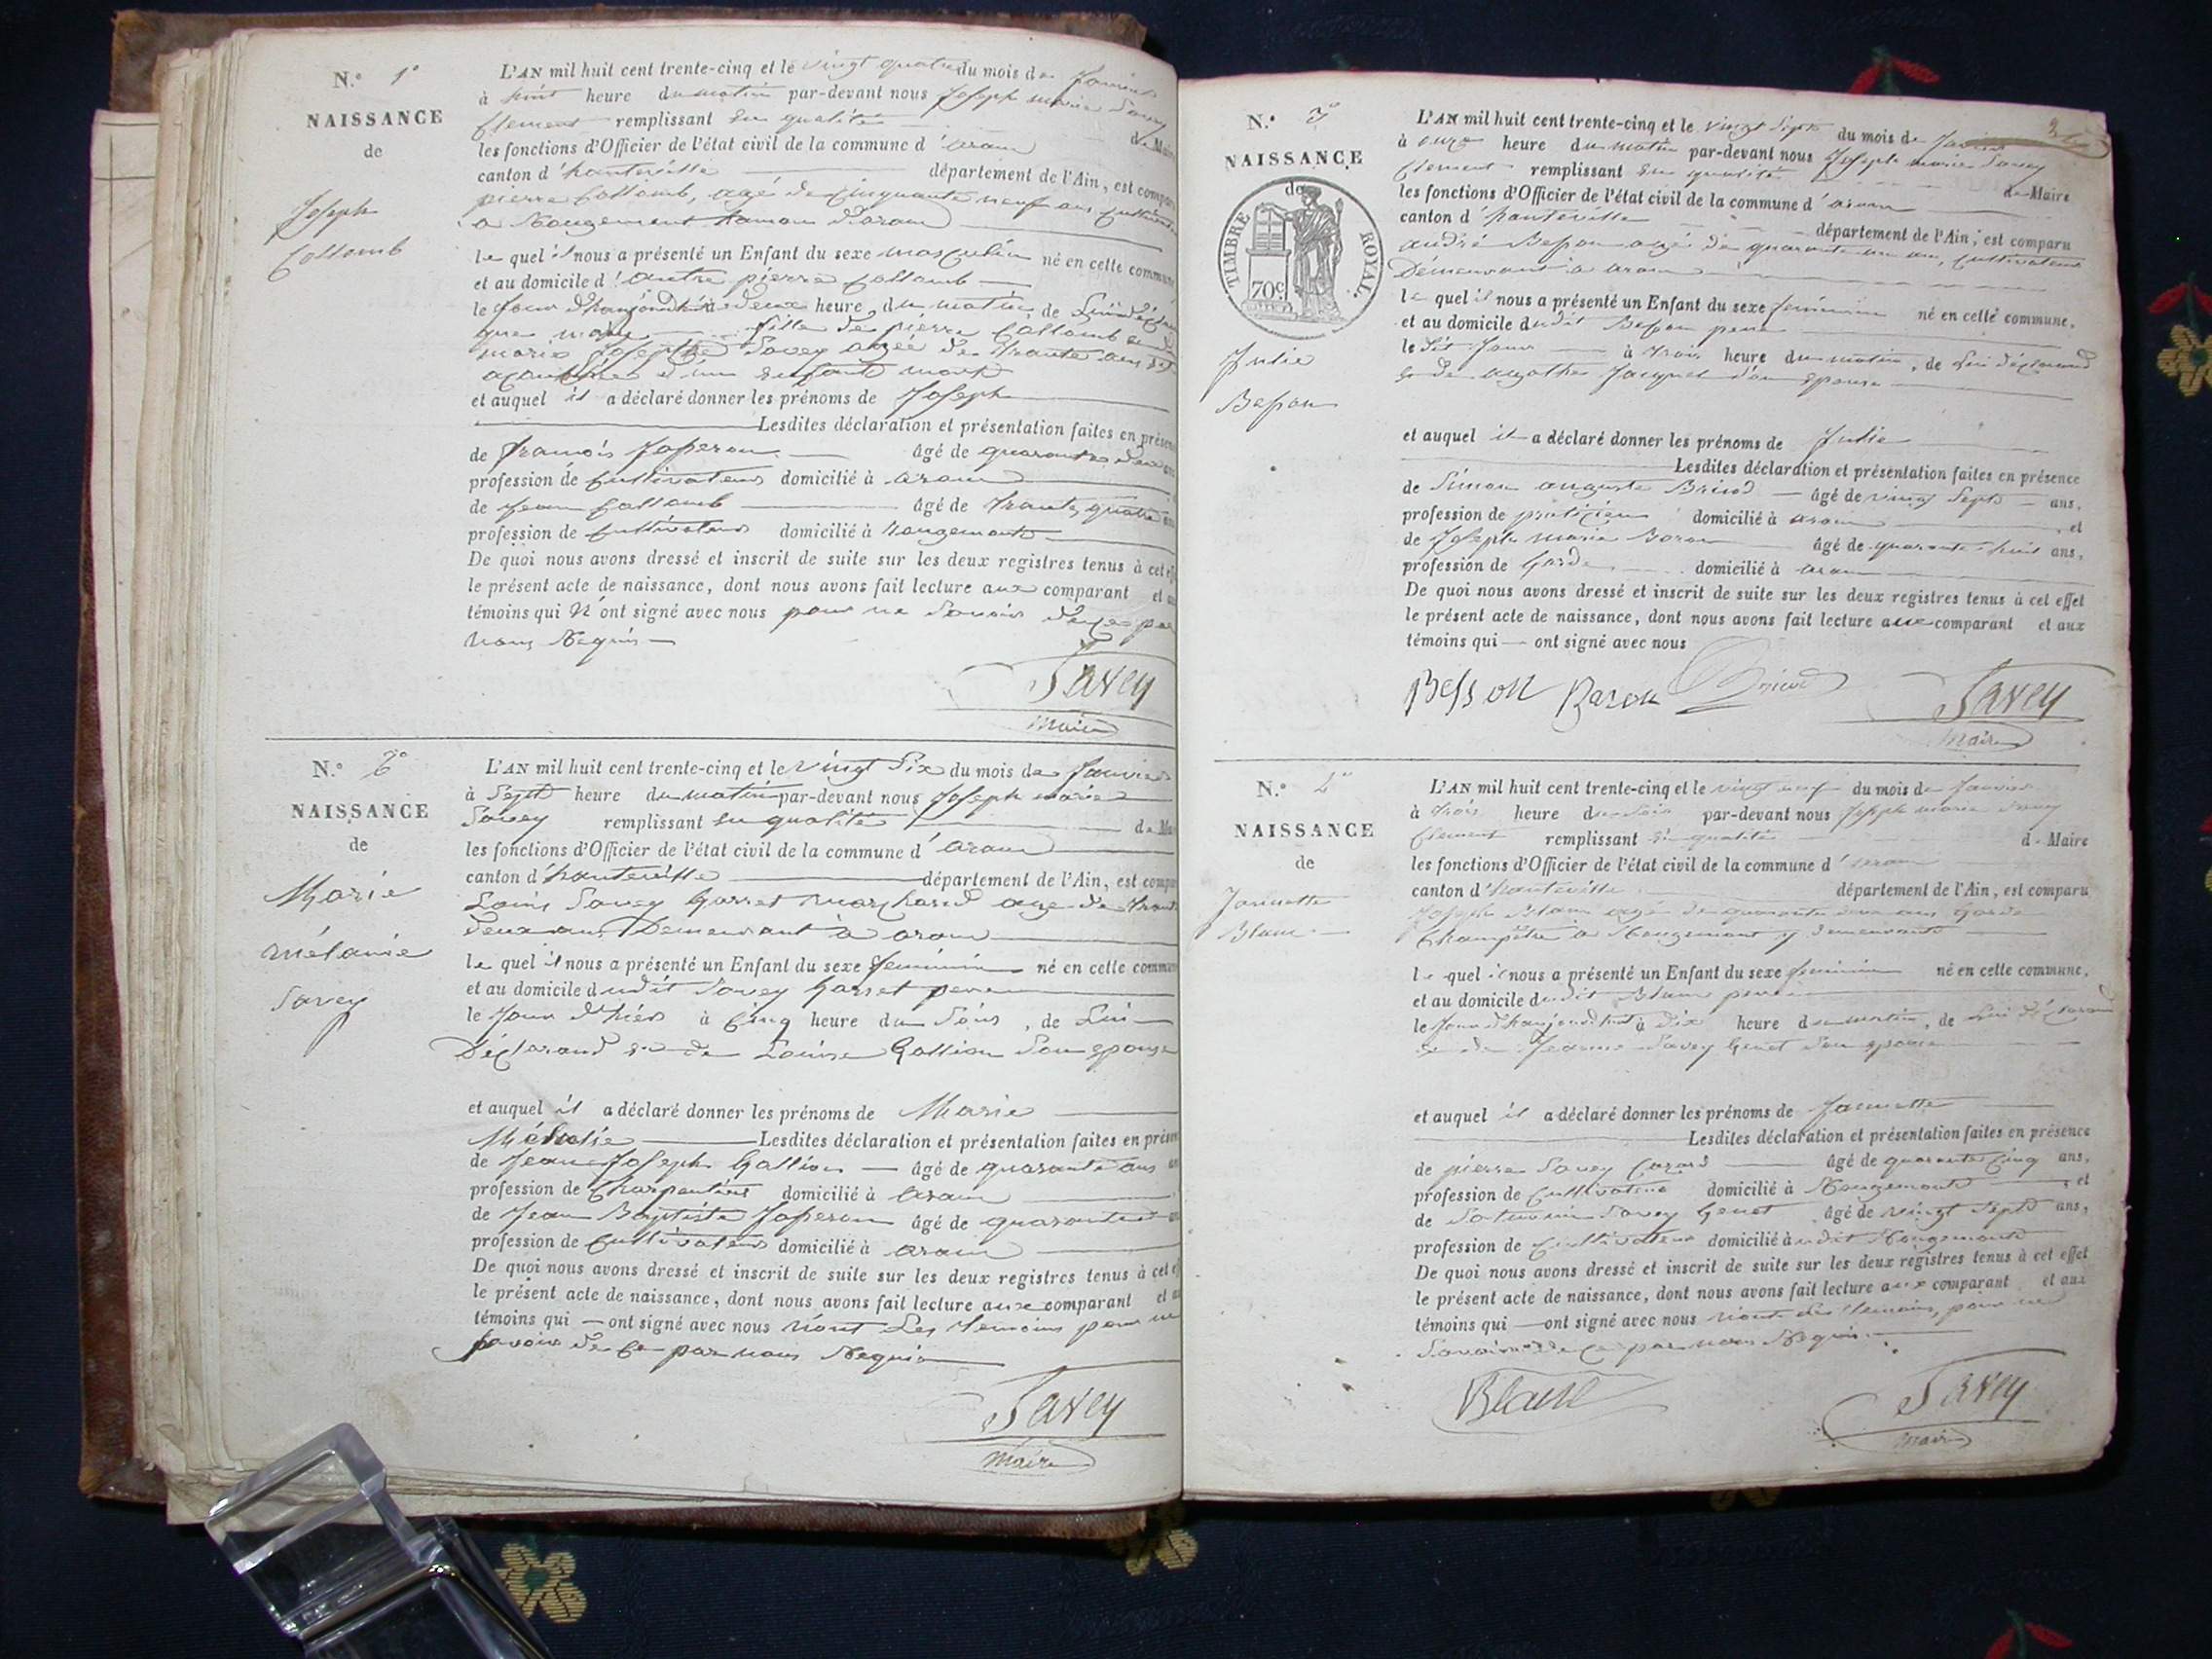 N.º 1º
NAISSANCE
de
Joseph
Collomb
L'AN mil huit cent trente-cinq et le vingt quatre du mois de Janvier
à huit heure du matin par-devant nous Joseph marie Savey
Clement remplissant en qualité de Maire
les fonctions d'Officier de l'état civil de la commune d'aranc
canton d'hauteville département de l'Ain, est comparu
pierre Collomb, agé de Cinquante neuf ans Cultivateur
a Rougemont hameau d'aranc
le quel il nous a présenté un Enfant du sexe masculin né en cette commune
et au domicile d'autre pierre Collomb
le Jour d'haujourd'hui à deux heure, du matin, de
fille de pierre Collomb
marie Josephte Savey agée de trante ans
acouchée d'un enfant
et auquel il a déclaré donner les prénoms de Joseph
Lesdites déclaration et présentation faites en présence
de francois Josserand âgé de quarante deux
profession de Cultivateur domicilié à aranc
de Jean Collomb âgé de trante quatre
profession de Cultivateur domicilié à Rougemont
De quoi nous avons dressé et inscrit de suite sur les deux registres tenus à cet effet
le présent acte de naissance, dont nous avons fait lecture aux comparant et aux
témoins qui n'ont signé avec nous pour ne Savoir de ce par
nous Requis
Savey
Maire
N.º 2º
NAISSANCE
de
Marie
mélanie
Savey
L'AN mil huit cent trente-cinq et le vingt Six du mois de Janvier
à Sept heure du matin par-devant nous Joseph marie
Savey remplissant en qualité de Maire
les fonctions d'Officier de l'état civil de la commune d'aranc
canton d'hauteville département de l'Ain, est comparu
Louis Savey Garret marchand agé de trante
deux ans, Demeurant à aranc
le quel il nous a présenté un Enfant du sexe feminin né en cette commune
et au domicile dudit Savey Garret pere
le Jour d'hier à Cinq heure du Soir, de Lui
Déclarand et de Louise Gallion Son epouse
et auquel il a déclaré donner les prénoms de Marie
Mélanie Lesdites déclaration et présentation faites en présence
de Jean Joseph Gallion âgé de quarante ans
profession de Charpentier domicilié à aranc
de Jean Baptiste Josserand âgé de quarante
profession de Cultivateur domicilié à aranc
De quoi nous avons dressé et inscrit de suite sur les deux registres tenus à cet effet
le présent acte de naissance, dont nous avons fait lecture aux comparant et aux
témoins qui ont signé avec nous n'ont Les temoins pour ne
Savoir de Ce par nous Requis
Savey
maire
N.º 3º
NAISSANCE
de
TIMBRE ROYAL.
70c
Julie
Besson
L'AN mil huit cent trente-cinq et le vingt Sept du mois de Janvier
à onze heure du matin par-devant nous Joseph marie Savey
Clement remplissant en qualité de Maire
les fonctions d'Officier de l'état civil de la commune d'aranc
canton d'hauteville département de l'Ain, est comparu
andré Besson agé de quarante un an, Cultivateur
Demeurant à aranc
le quel il nous a présenté un Enfant du sexe feminin né en cette commune,
et au domicile dudit Besson pere
le dit Jour à trois heure du matin, de Lui déclarand
et de agathe Jacquet Son epouse
et auquel il a déclaré donner les prénoms de Julie
Lesdites déclaration et présentation faites en présence
de Simon auguste Brisod âgé de vingt Sept ans,
profession de praticien domicilié à aranc, et
de Joseph marie Baron âgé de quarante huit ans,
profession de Garde domicilié à aranc
De quoi nous avons dressé et inscrit de suite sur les deux registres tenus à cet effet
le présent acte de naissance, dont nous avons fait lecture aux comparant et aux
témoins qui ont signé avec nous
Besson Baron Savey
Maire
N.º 4º
NAISSANCE
de
Jannette
Blanc
L'AN mil huit cent trente-cinq et le vingt neuf du mois de Janvier
à trois heure du Soir par-devant nous Joseph marie Savey
Clement remplissant en qualité de Maire
les fonctions d'Officier de l'état civil de la commune d'aranc
canton d'hauteville département de l'Ain, est comparu
Joseph Blanc agé de quarante deux ans Garde
Champêtre à Rougemont y demeurant
le quel il nous a présenté un Enfant du sexe feminin né en cette commune,
et au domicile dudit Blanc pere
le Jour d'haujourd'hui à dix heure du matin, de Lui déclarand
et de Jeanne Savey Genet Son epouse
et auquel il a déclaré donner les prénoms de Jannette
Lesdites déclaration et présentation faites en présence
de pierre Savey âgé de quarante Cinq ans,
profession de Cultivateur domicilié à Rougemont, et
de Saturnin Savey Genet âgé de vingt Sept ans,
profession de Cultivateur domicilié à udit Rougemont
De quoi nous avons dressé et inscrit de suite sur les deux registres tenus à cet effet
le présent acte de naissance, dont nous avons fait lecture aux comparant et aux
témoins qui ont signé avec nous n'ont des temoins, pour ne
Savoir de Ce par nous Requis
Blanc Savey
Maire